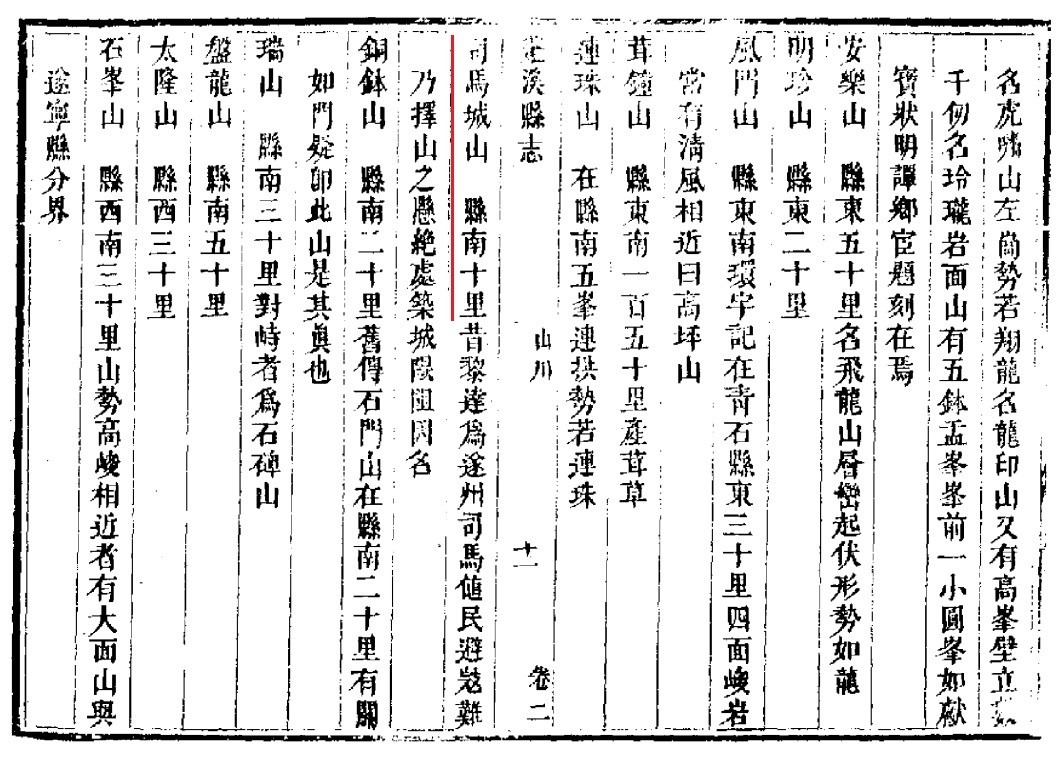 名虎嘯山左崗勢若翔龍名龍印山又有高峯壁立萬
千仞名玲瓏岩面山有五鉢盂峯峯前一小圓峯如獻
寶狀明譚鄉宦題刻在焉
安樂山　縣東五十里名飛龍山層巒起伏形勢如龍
明珍山　縣東二十里
風門山　縣東南環宇記在青石縣東三十里四面峻岩
常有清風相近曰高坪山
茸鐘山　縣東南一百五十里產茸草
蓮珠山　在縣南五峯連拱勢若連珠
溪縣志　山川　十一　卷二
司馬城山　縣南十里昔黎達為遂州司馬值民避寇難
乃擇山之懸絶處築城限阻因名
銅鉢山　縣南二十里舊傳石門山在縣南二十里有關
如門疑卽此山是其眞也
瑞山　縣南三十里對峙者爲石碑山
盤龍山　縣南五十里
太隆山　縣西三十里
石峯山　縣西南三十里山勢高峻相近者有大面山與
遂寧縣分界